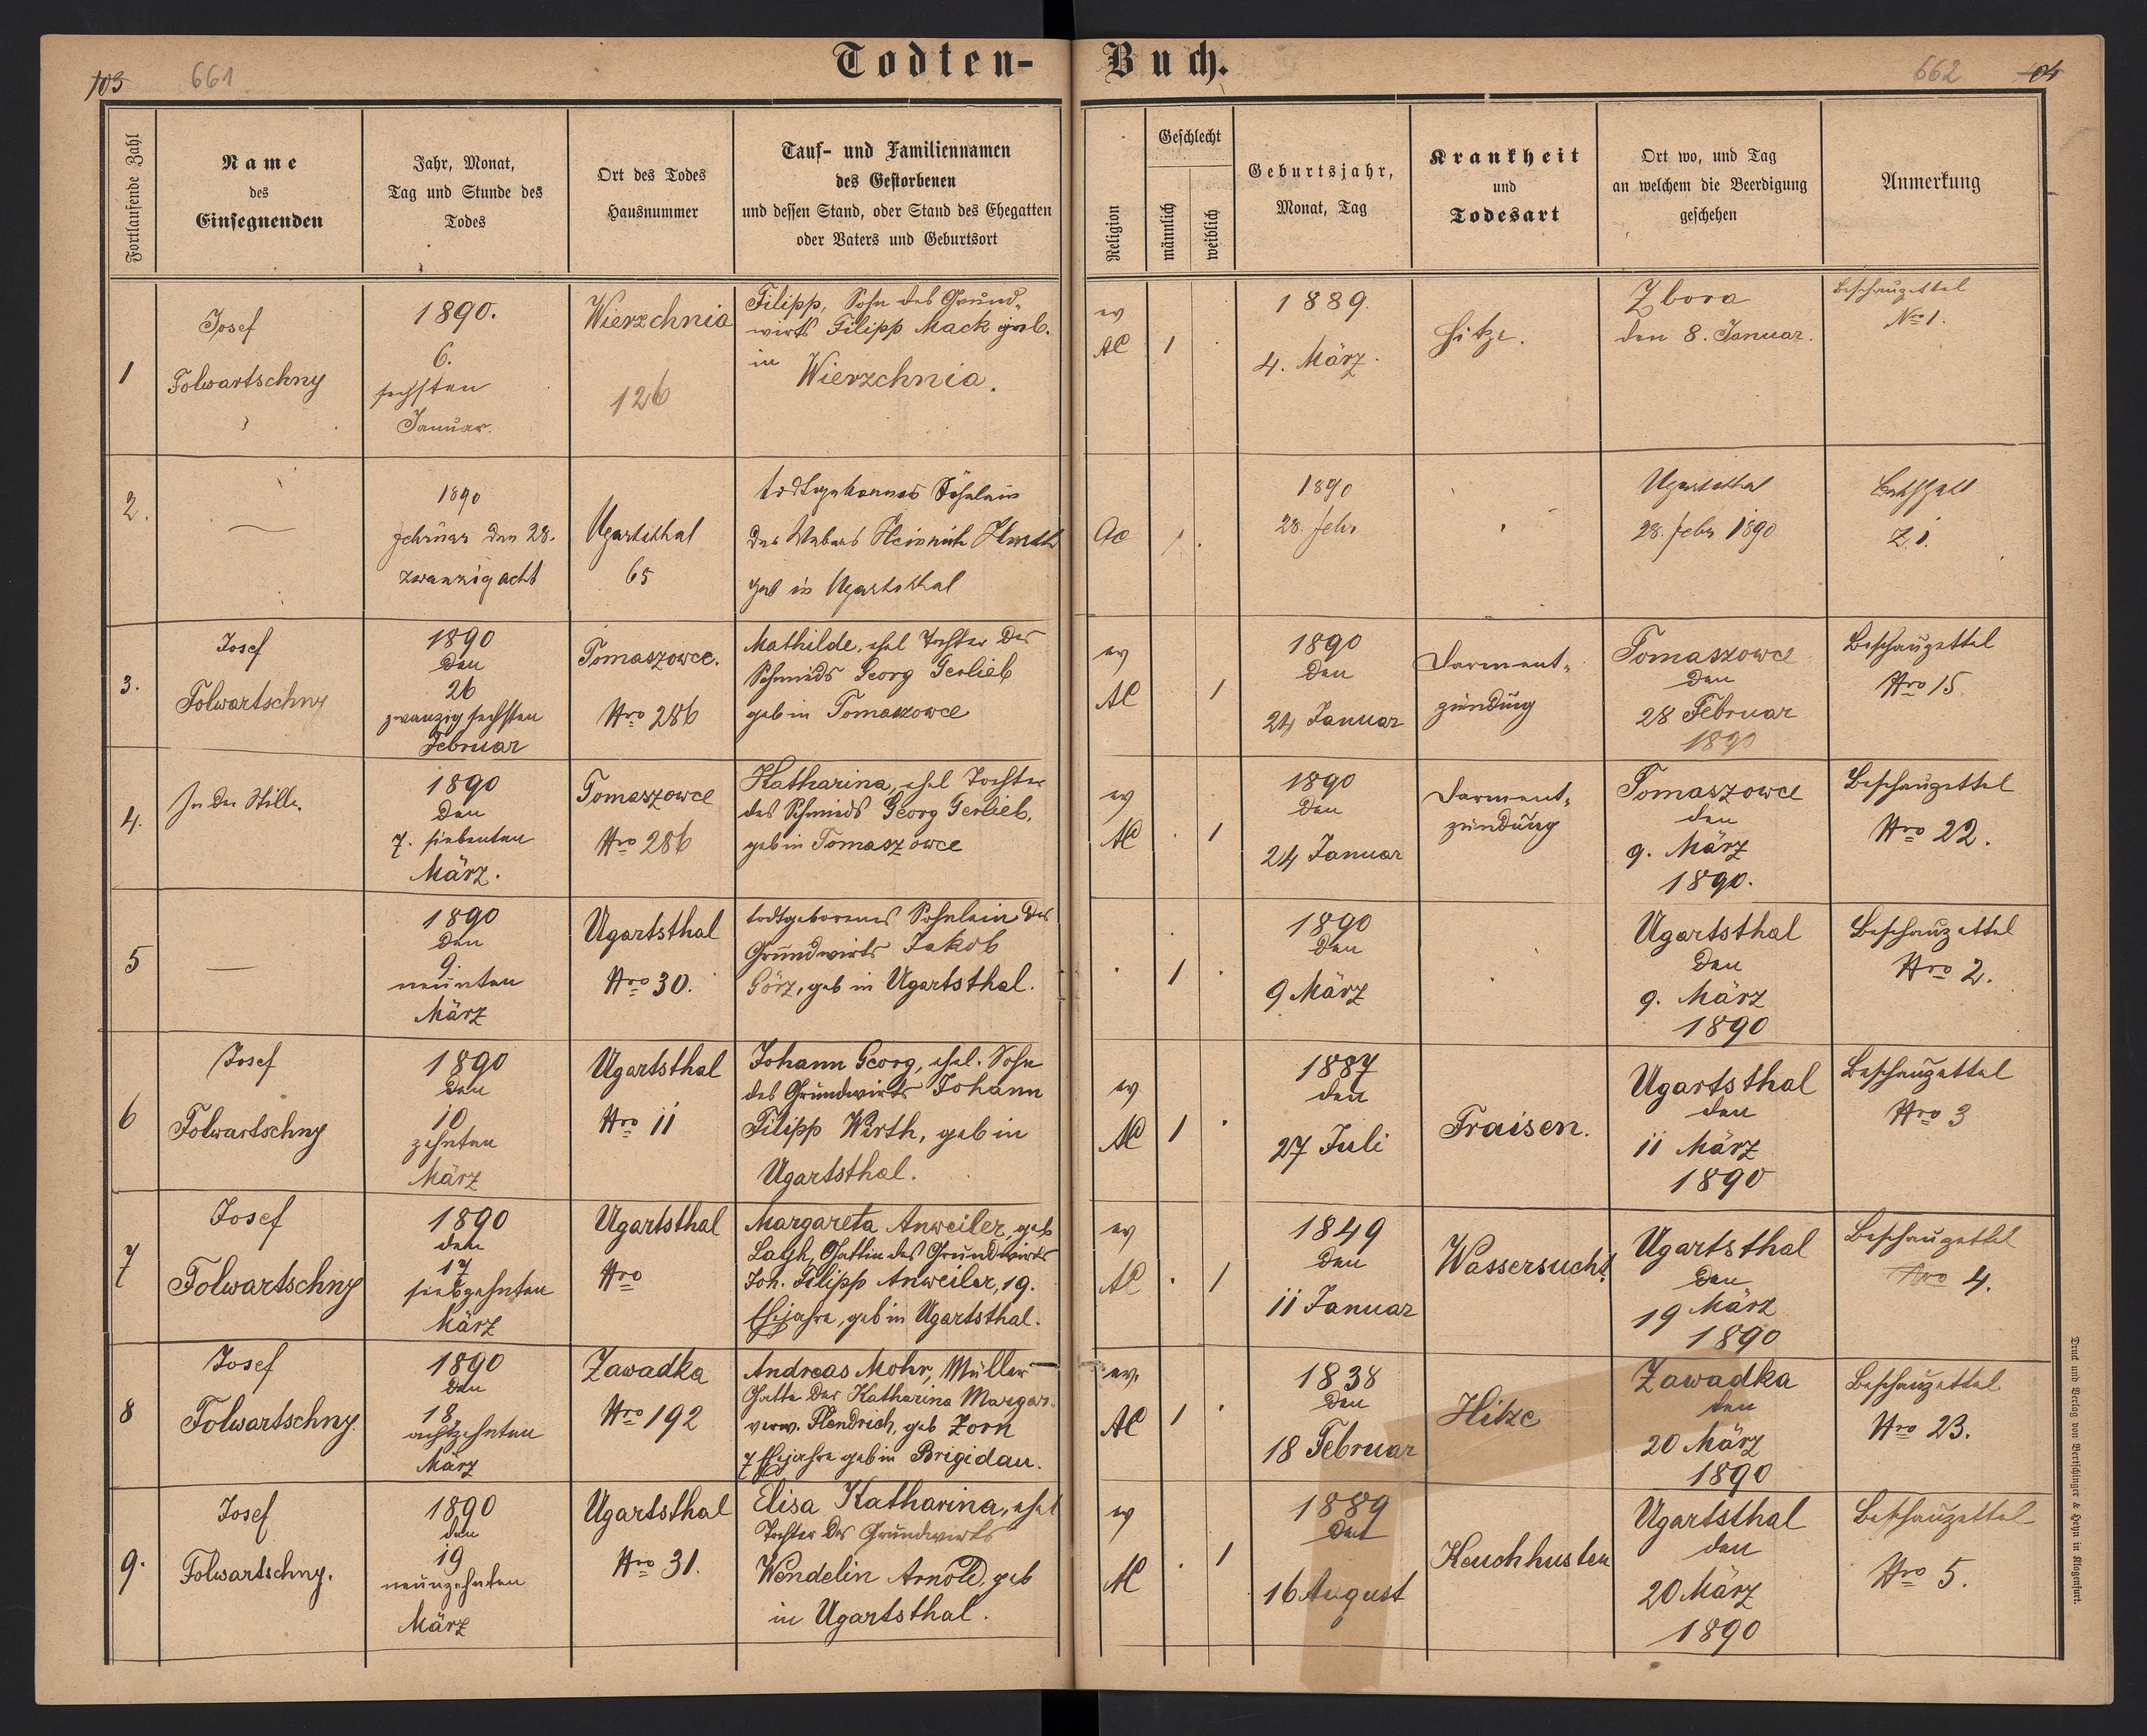 103
661
Todten-Buch.
662
104
Fortlaufende Zahl
Name
des
Einsegnenden
Jahr, Monat,
Tag und Stunde des
Todes
Ort des Todes
Hausnummer
Tauf- und Familiennamen
des Gestorbenen
und dessen Stand, oder Stand des Ehegatten
oder Vaters und Geburtsort
Religion
Geschlecht
männlich
weiblich
Geburtsjahr,
Monat, Tag
Krankheit
und
Todesart
Ort wo, und Tag
an welchem die Beerdigung
geschehen
Anmerkung
1
Josef
Folwartschny
1890.
6.
sechsten
Januar.
Wierzchnia
126
Filipp, Sohn des Grund-
wirts Filipp Mack geb.
in Wierzchnia.
ev
AC
1
1889.
4. März.
Hitze.
Zbora
den 8. Januar.
Beschauzettel
Nro 1.
2.
1890
Februar den 28.
zwanzig acht
Ugartsthal
65
todtgeborenes Söhnlein
des Webers Heinrich
geb in Ugartsthal
1.
1890
28. Febr
Ugartsthal
28. Febr 1890
Z. 1.
3.
Josef
Folwartschny
1890
den
26
zwanzig sechsten
Februar
Tomaszowce.
Nro 286
Mathilde, ehel Tochter des
Schmieds Georg Gerlieb
geb in Tomaszowce
ev
AC
1
1890
den
24 Januar
Darment-
zündung
Tomaszowce
den
28 Februar
1890
Beschauzettel
Nro 15
4.
In der Stille.
1890
den
7. siebenten
März.
Tomaszowce
Nro 286
Katharina, ehel Tochter
des Schmieds Georg Gerlieb,
geb in Tomaszowce
ev
AC
1
1890
den
24 Januar
Darment-
zündung
Tomaszowce
den
9. März
1890.
Beschauzettel
Nro 22.
5
1890
den
9.
neunten
März
Ugartsthal
Nro 30.
todtgeborenes Söhnlein des
Grundwirts Jakob
Görz, geb in Ugartsthal.
1
1890
den
9 März
Ugartsthal
den
9. März
1890
Beschauzettel
Nro 2.
6
Josef
Folwartschny
1890
den
10
zehnten
März
Ugartsthal
Nro 11
Johann Georg, ehel. Sohn
des Grundwirts Johann
Filipp Wirth, geb in
Ugartsthal.
ev
AC
1
1887
den
27 Juli
Fraisen.
Ugartsthal
den
11 März
1890
Beschauzettel
Nro 3
7
Josef
Folwartschny
1890
den
17
siebzehnten
März
Ugartsthal
Nro
Margareta Anweiler, geb
Gattin des Grundwirts
Joh. Filipp Anweiler, 19.
Ehejahre, geb in Ugartsthal.
ev
AC
1
1849
den
11 Januar
Wassersucht.
Ugartsthal
den
19 März
1890
Beschauzettel
Nro 4.
8
Josef
Folwartschny.
1890
den
18.
achtzehnten
März
Zawadka
Nro 192
Andreas Mohr, Müller
Gatte der Katharina Margar.
verw. Hendrich, geb Zorn
7 Ehejahre geb in Brigidau.
ev.
AC
1
1838
den
18 Februar
Hitze
Zawadka
den
20 März
1890
Beschauzettel
Nro 23.
9.
Josef
Folwartschny.
1890
den
19
neunzehnten
März
Ugartsthal
Nro 31.
Elisa Katharina, ehel
Tochter des Grundwirts
Wendelin Arnold, geb
in Ugartsthal.
ev
AC
1
1889
den
16 August
Keuchhusten
Ugartsthal
den
20 März
1890
Beschauzettel
Nro 5.
Druck und Verlag von Bertschinger & Heyn in Klagenfurt.